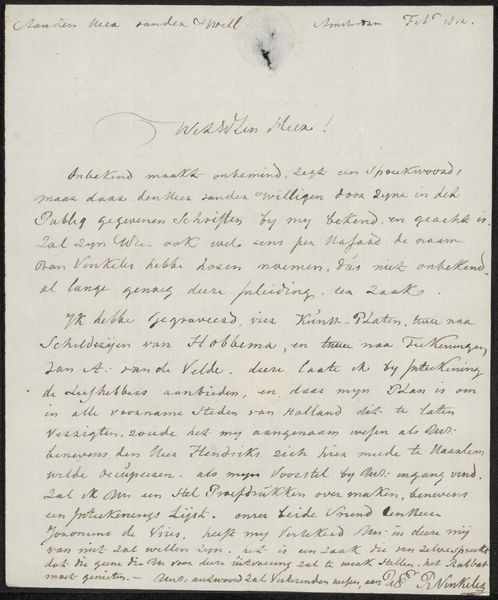 Aan den Heer van der Will
Amsterdam Febr 1812.
WelEdlen Heer!
Onbekend maakt onbemind, zegt een Spreekwoord,
maar daar den Heer van der Willigen door zyne in het
Publiq gegevenen Schriften by my bekend, en geacht is
Zal zyn ook wel eens per de naam
van Vinkeles hebbe horen noemen, dus niet onbekend
al lange genoeg deze Inleiding. ter Zaak.
Ik hebbe Gegraveerd, vier Kunst-Platen, twee naa
Schilderijen van Hobbema, en twee naa Teekeningen
van A. van de Velde. deeze laate ik by Inteekening
de Liefhebbers aanbieden, en daar myn Plan is om
in alle voorname Steden van Holland dit te laten
verrigten, zoude het my aangenaam wesen als
benevens den Heer Hendriks zich hier mede te Haarlem
wilde occupeeren. als myn Voorstel by ingang vind.
Zal ik een Stel Proefdrukken over maken, benevens
een Inteekenings Lijst. onse beide Vriend den Heer
Jeronimo de Vries, heeft my Verzekerd in deeze mij
van niet zal willen zyn. het is een zaak die van zelve spreekt
dat die geene die voor deze uitvoering zal te werk stellen. het Rabbat
moet genieten. antwoord zal verwagtende wesen, aan R Vinkeles